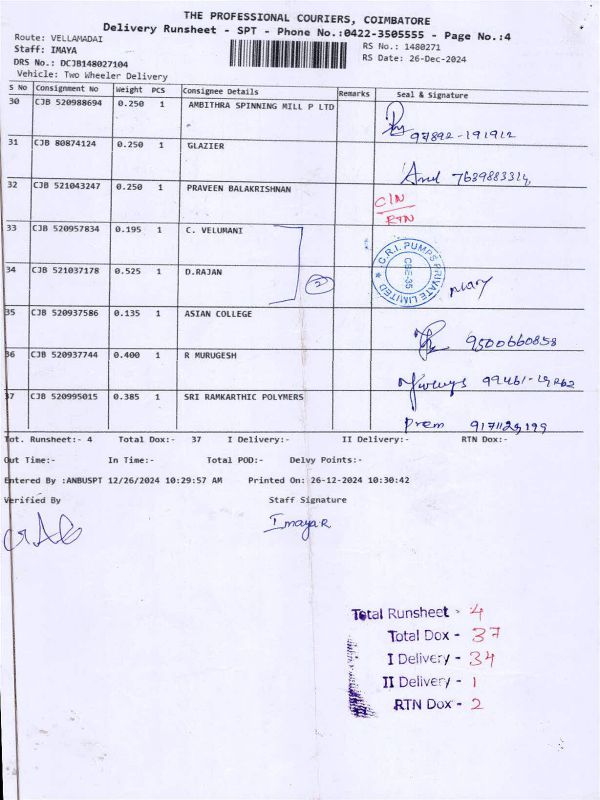 THE PROFESSIONAL COURIERS, COIMBATORE
Delivery Runsheet - SPT - Phone No.:0422-3505555 - Page No.:4
Route: VELLAMADAI
RS No.: 1480271
Staff: IMAYA
RS Date: 26-Dec-2024
DRS No.: DCJB148027104
Vehicle: Two Wheeler Delivery
S No Consignment No Weight PCS Consignee Details Remarks Seal & Signature
30 CJB 520988694 0.250 1 AMBITHRA SPINNING MILL P LTD
97892-191912
31 CJB 80874124 0.250 1 GLAZIER
7639883314
32 CJB 521043247 0.250 1 PRAVEEN BALAKRISHNAN
CIN
RTN
33 CJB 520957834 0.195 1 C. VELUMANI
C.R.I. PUMPS PRIVATE LIMITED
CBE-35
34 CJB 521037178 0.525 1 D.RAJAN
2
35 CJB 520937586 0.135 1 ASIAN COLLEGE
9500660858
36 CJB 520937744 0.400 1 R MURUGESH
37 CJB 520995015 0.385 1 SRI RAMKARTHIC POLYMERS
Prem
Tot. Runsheet:- 4 Total Dox:- 37 I Delivery:- II Delivery:- RTN Dox:-
Out Time:- In Time:- Total POD:- Delvy Points:-
Entered By :ANBUSPT 12/26/2024 10:29:57 AM Printed On: 26-12-2024 10:30:42
Verified By Staff Signature
ImayaR
Total Runsheet - 4
Total Dox - 37
I Delivery - 34
II Delivery - 1
RTN Dox - 2